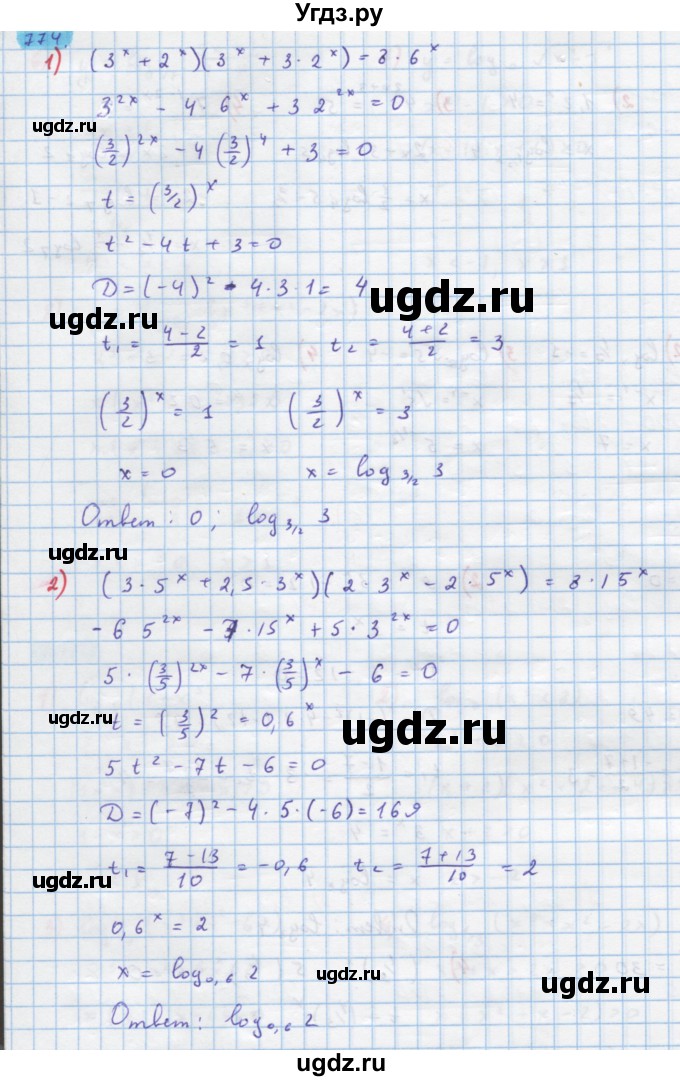 Угдз.ру
774.
1) (3^x + 2^x)(3^x + 3·2^x) = 8·6^x
3^2x - 4·6^x + 3 2^2x = 0
ugdz.ru
(3/2)^2x - 4(3/2)^4 + 3 = 0
t = (3/2)^x
t² - 4t + 3 = 0
D = (-4)² - 4·3·1 = 4
ugdz.ru
ugdz.ru
t₁ = (4-2)/2 = 1   t₂ = (4+2)/2 = 3
(3/2)^x = 1   (3/2)^x = 3
x = 0   x = log_3/2 3
Ответ: 0; log_3/2 3
ugdz.ru
ugdz.ru
2) (3·5^x + 2,5·3^x)(2·3^x - 2·5^x) = 8·15^x
-6 5^2x - 7·15^x + 5·3^2x = 0
5·(3/5)^2x - 7·(3/5)^x - 6 = 0
ugdz.ru
t = (3/5)^2 = 0,6^x
ugdz.ru
5t² - 7t - 6 = 0
D = (-7)² - 4·5·(-6) = 169
t₁ = (7-13)/10 = -0,6   t₂ = (7+13)/10 = 2
ugdz.ru
0,6^x = 2
x = log_0,6 2
ugdz.ru
ugdz.ru
Ответ: log_0,6 2
ugdz.ru